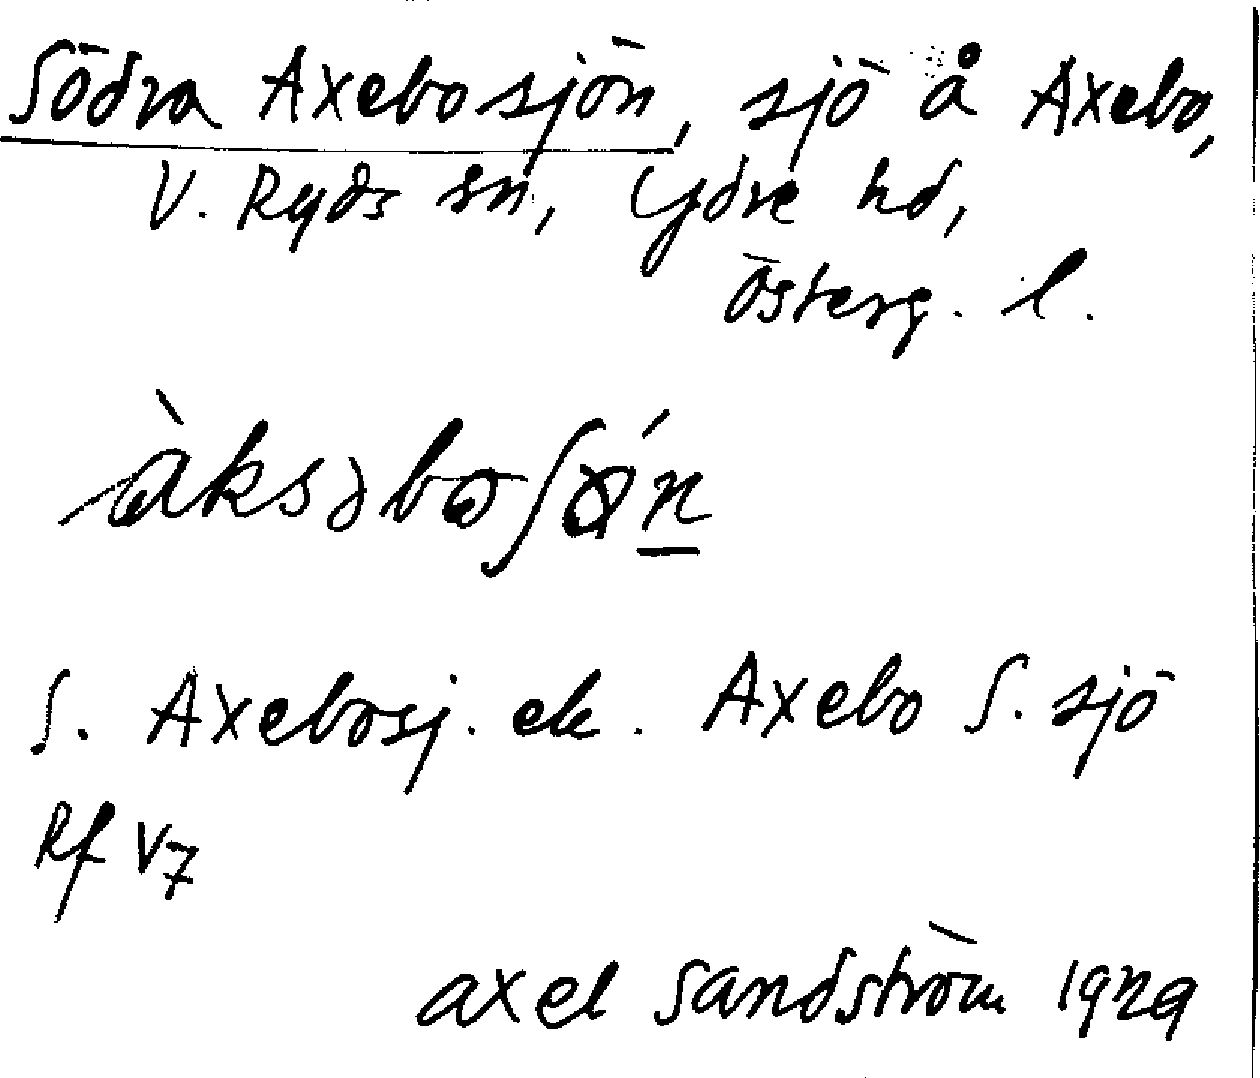 Södra Axebosjön, sjö å Axebo,
V. Ryds sn, Ydre hd,
Österg. l.
àksəboʃǿn
S. Axebosj. ek. Axebo S. sjö
Rf V7
Axel Sandström 1929